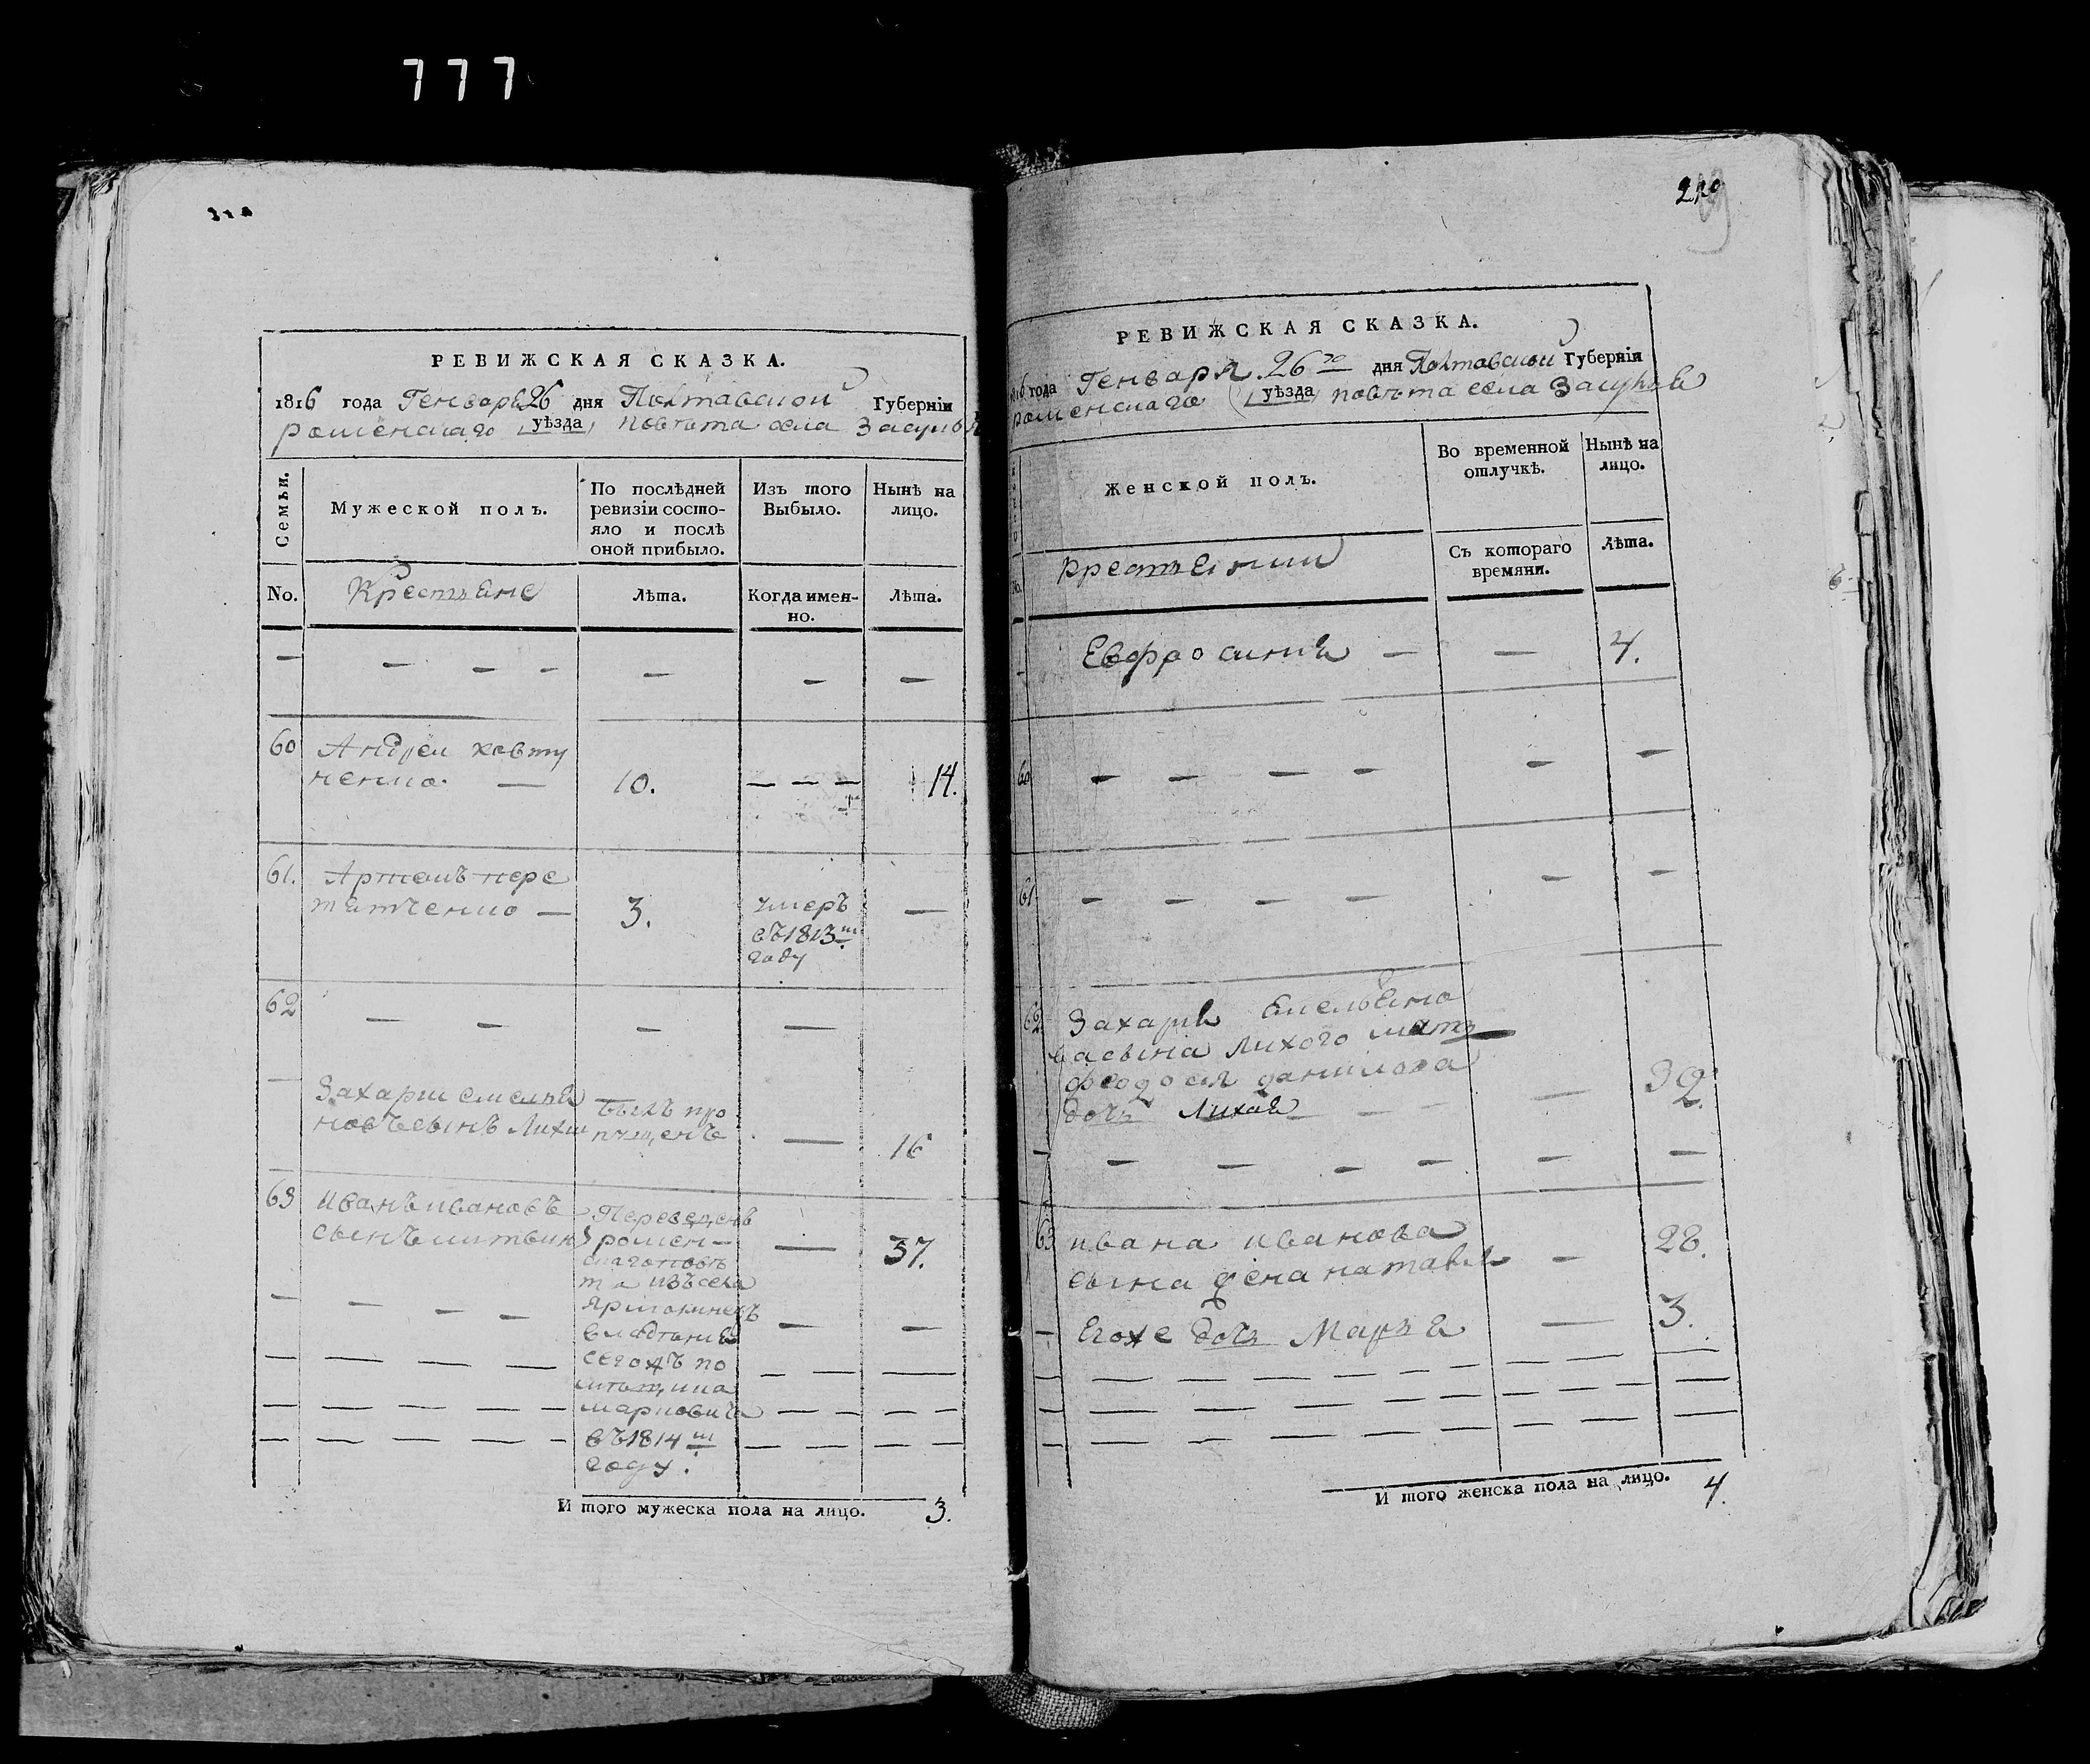 777
РЕВИЖСКАЯ СКАЗКА.
1816 года Генваря 26 дня Полтавской Губерніи
роменскаго уѣзда, повѣта села Засулья
Семьи.
Мужеской полъ.
По послѣдней
ревизіи состо-
яло и послѣ
оной прибыло.
Изъ того
Выбыло.
Нынѣ на
лицо.
No.
Крестьяне
Лѣта.
Когда имен-
но.
Лѣта.
— — — — — — —
60 Андреи ковту
ненко — 10. — — — 14.
61. Артемъ пере
тятченко — 3. умеръ —
въ 1813м
году
62 — — — —
— Захарии емелья
новъ сынъ Лихии
былъ про
пущенъ — 16
63 иванъ ивановъ
сынъ литвин
Переведенъ
ромен-
скаго повѣ
та изъ села
— 37.
— — — — — —
владѣния
сегожъ по
мѣщика
марковича
въ 1814м
году.
И того мужеска пола на лицо. 3.
219
РЕВИЖСКАЯ СКАЗКА.
1816 года Генваря 26го дня Полтавской Губерніи
роменскаго уѣзда, повѣта села Засулья
Женской полъ.
Во временной
отлучкѣ.
Нынѣ на
лицо.
No.
крестьянки
Съ котораго
времяни.
Лѣта.
— Евфросиния — — 4.
60 — — — — — —
61 — — — — — —
62. Захария Емельяно
ва сына Лихого мать
феодосия данилова
дочь Лихая — — — 32.
— — — — — — —
63 ивана иванова
сына жена наталья — 28.
— Егоже дочь Марья — 3.
И того женска пола на лицо. 4.